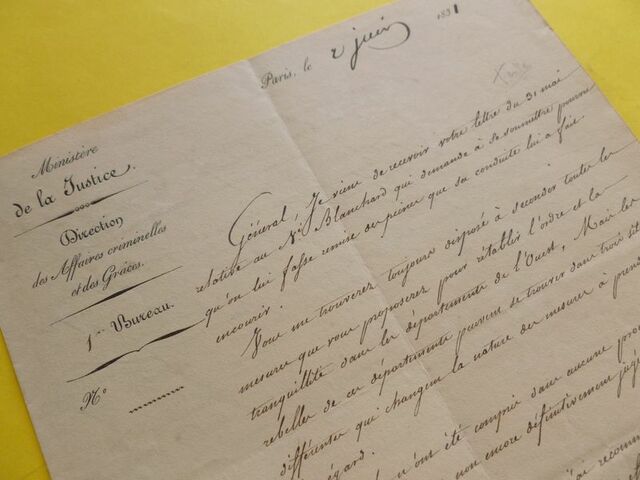 Paris, le 2 juin 1831
Ministère
de la Justice.
Direction
des Affaires criminelles
et des Grâces.
1er Bureau.
N°
Général, Je viens de recevoir votre lettre du 31 mai
relative au Né Blanchard qui demande à se soumettre pourvu
qu'on lui fasse remise des peines que sa conduite lui a fait
encourir.
Vous me trouverez toujours disposé à seconder toutes les
mesures que vous proposerez pour rétablir l'ordre et la
tranquillité dans les départements de l'Ouest, Mais les
rebelles de ces départements peuvent se trouver dans trois
différentes qui changent la nature des mesures à
égard.
n'ont été compris dans aucune
non encore définitivement